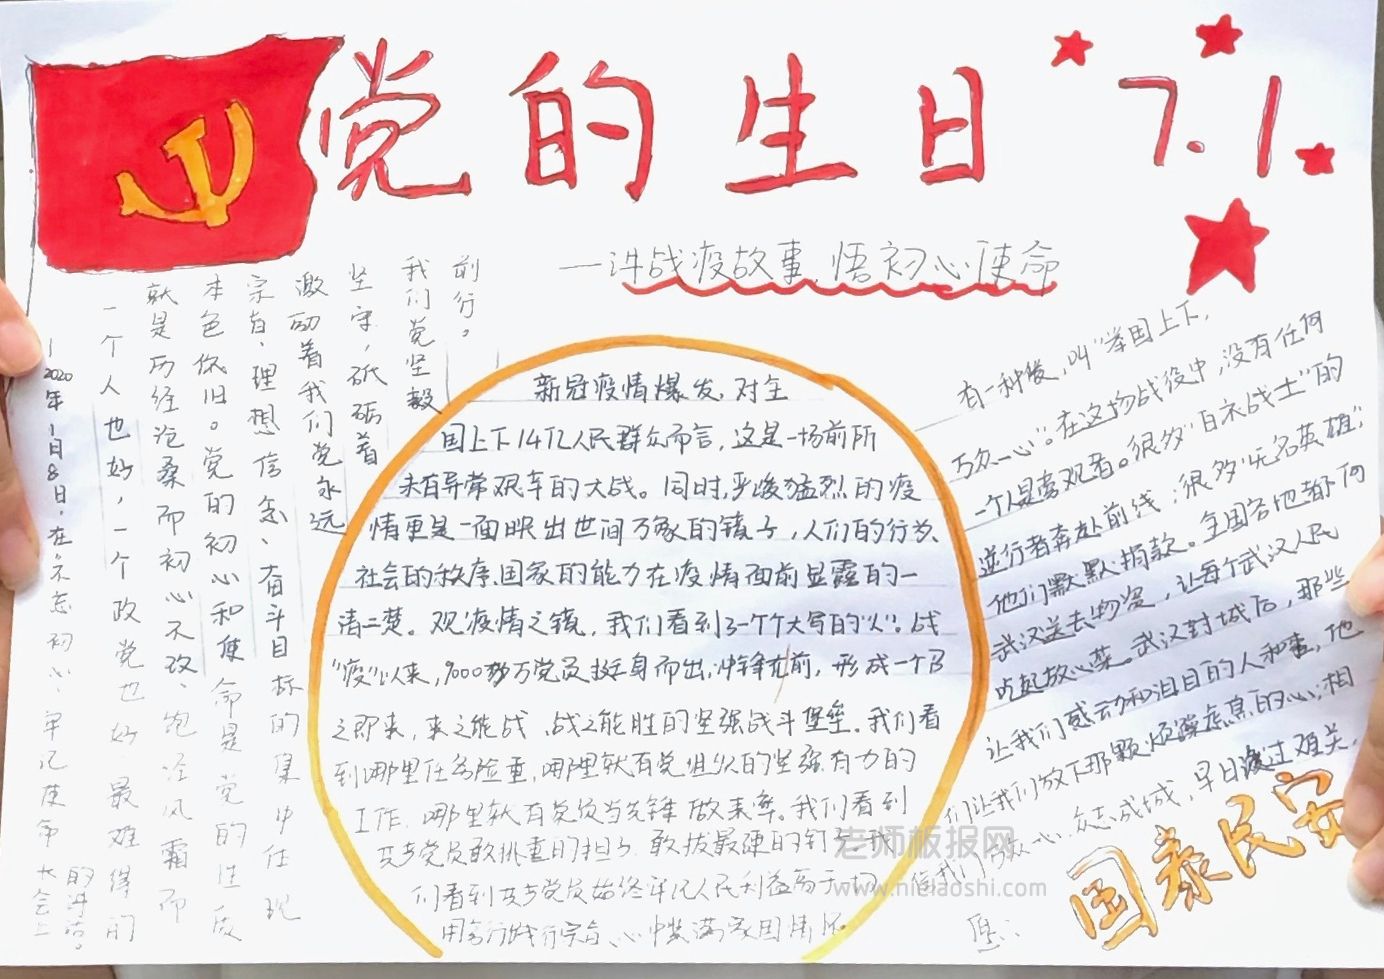 党的生日 7.1
—讲战疫故事、悟初心使命
前行。
我们党坚毅
坚守,砥砺着
激励着我们党永远
宗旨、理想信念、奋斗目标的集中体现
本色依旧。党的初心和使命是党的性质
就是历经沧桑而初心不改、饱经风霜而
一个人也好,一个政党也好,最难得的
—2020年1月8日,在“不忘初心、牢记使命大会上
的讲话。
新冠疫情爆发,对全
国上下14亿人民群众而言,这是一场前所
未有异常艰辛的大战。同时,严峻猛烈的疫
情更是一面映出世间万象的镜子,人们的行为、
社会的秩序、国家的能力在疫情面前显露的一
清二楚。观疫情之镜,我们看到了一个个大写的“人”。战
“疫”以来,900多万党员挺身而出,冲锋在前,形成一个召
之即来,来之能战、战之能胜的坚强战斗堡垒。我们看
到哪里任务险重,哪里就有党组织的坚强有力的
工作,哪里就有党员当先锋做表率。我们看到
共产党员敢挑重的担子、敢拔最硬的钉子,我
们看到共产党员始终牢记人民利益高于一切,
用实行践行宗旨、心中装满家国情怀。
有一种爱,叫“举国上下,
万众一心”。在这场战役中,没有任何
一个人是旁观者。很多“白衣战士”的
逆行者奔赴前线;很多“无名英雄”
他们默默捐款。全国各地都向
武汉送去物资,让每个武汉人民
吃起放心菜。武汉封城后,那些
让我们感动和泪目的人和事,他
们让我们放下那颗烦躁焦虑的心;相
信我们万众一心、众志成城,早日渡过难关。
愿:
国泰民安
老师板报网
www.nielaoshi.com